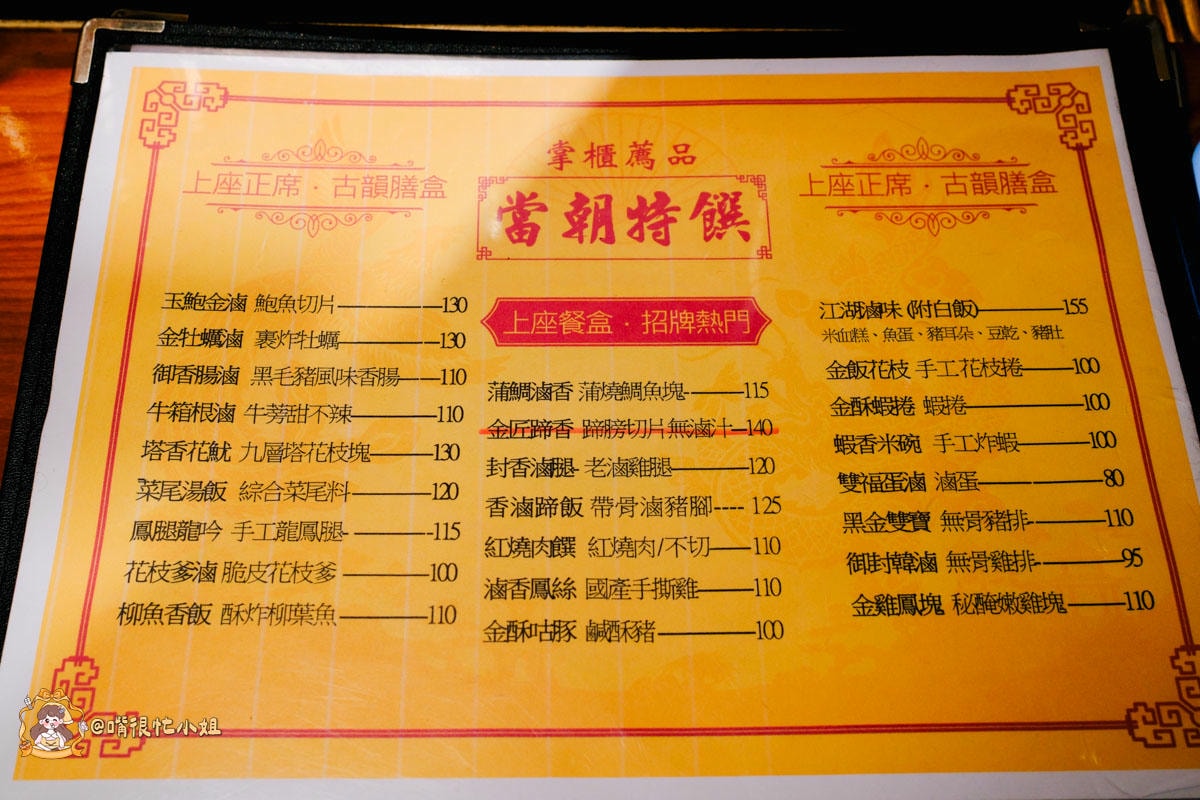 掌櫃薦品
當朝特饌
上座正席·古韻膳盒
玉鮑金滷 鮑魚切片——130
金牡蠣滷 裹炸牡蠣——130
御香腸滷 黑毛豬風味香腸——110
牛箱根滷 牛蒡甜不辣——110
塔香花魷 九層塔花枝塊——130
菜尾湯飯 綜合菜尾料——120
鳳腿龍吟 手工龍鳳腿——115
花枝爹滷 脆皮花枝爹——100
柳魚香飯 酥炸柳葉魚——110
上座餐盒·招牌熱門
蒲鯛滷香 蒲燒鯛魚塊——115
金匠蹄香 蹄膀切片無滷汁—140
封香滷腿 老滷雞腿——120
香滷蹄飯 帶骨滷豬腳---- 125
紅燒肉饌 紅燒肉/不切——110
滷香鳳絲 國產手撕雞——110
金酥咕豚 鹹酥豬——100
上座正席·古韻膳盒
江湖滷味(附白飯)——155
米血糕、魚蛋、豬耳朵、豆乾、豬肚
金飯花枝 手工花枝捲——100
金酥蝦捲 蝦捲——100
蝦香米碗 手工炸蝦——100
雙福蛋滷 滷蛋——80
黑金雙寶 無骨豬排——110
御封韓滷 無骨雞排——95
金雞鳳塊 秘醃嫩雞塊——110
@嘴很忙小姐